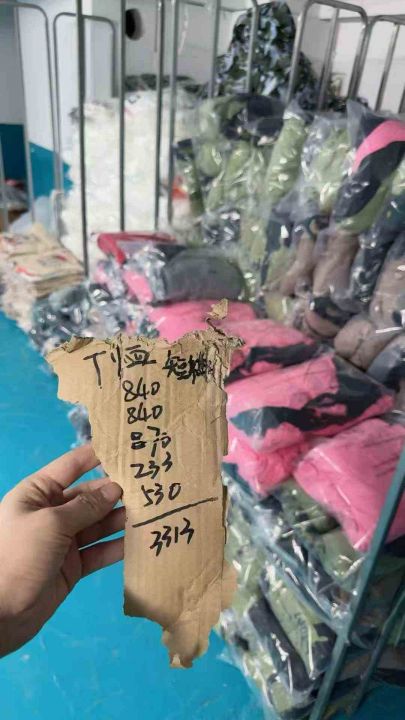 T恤
840
840
870
233
530
3313